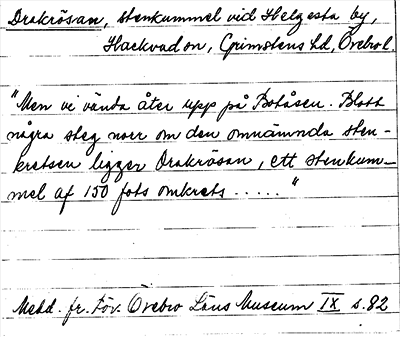 Drakrösan, stenkummel vid Helgesta by,
Hackvad sn, Grimstens hd, Örebro l.
"Men vi vända åter upp på Botåsen. Blott
några steg norr om den omnämnda sten-
kretsen ligger Drakrösan, ett stenkum-
mel af 150 fots omkrets ....."
Medd. fr. För. Örebro Läns Museum IX s. 82